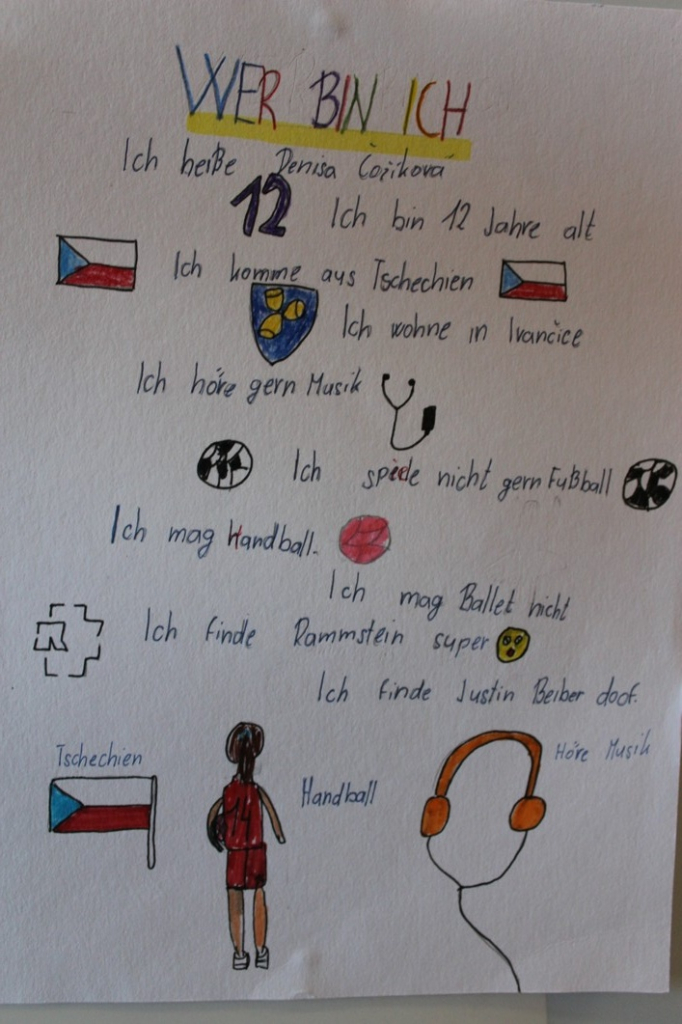 WER BIN ICH
Ich heiße Denisa Čožíková
12 Ich bin 12 Jahre alt
Ich komme aus Tschechien
Ich wohne in Ivančice
Ich höre gern Musik
Ich spiele nicht gern Fußball
Ich mag Handball.
Ich mag Ballet nicht
R Ich finde Rammstein super
Ich finde Justin Beiber doof.
Tschechien
Handball
Höre Musik
14